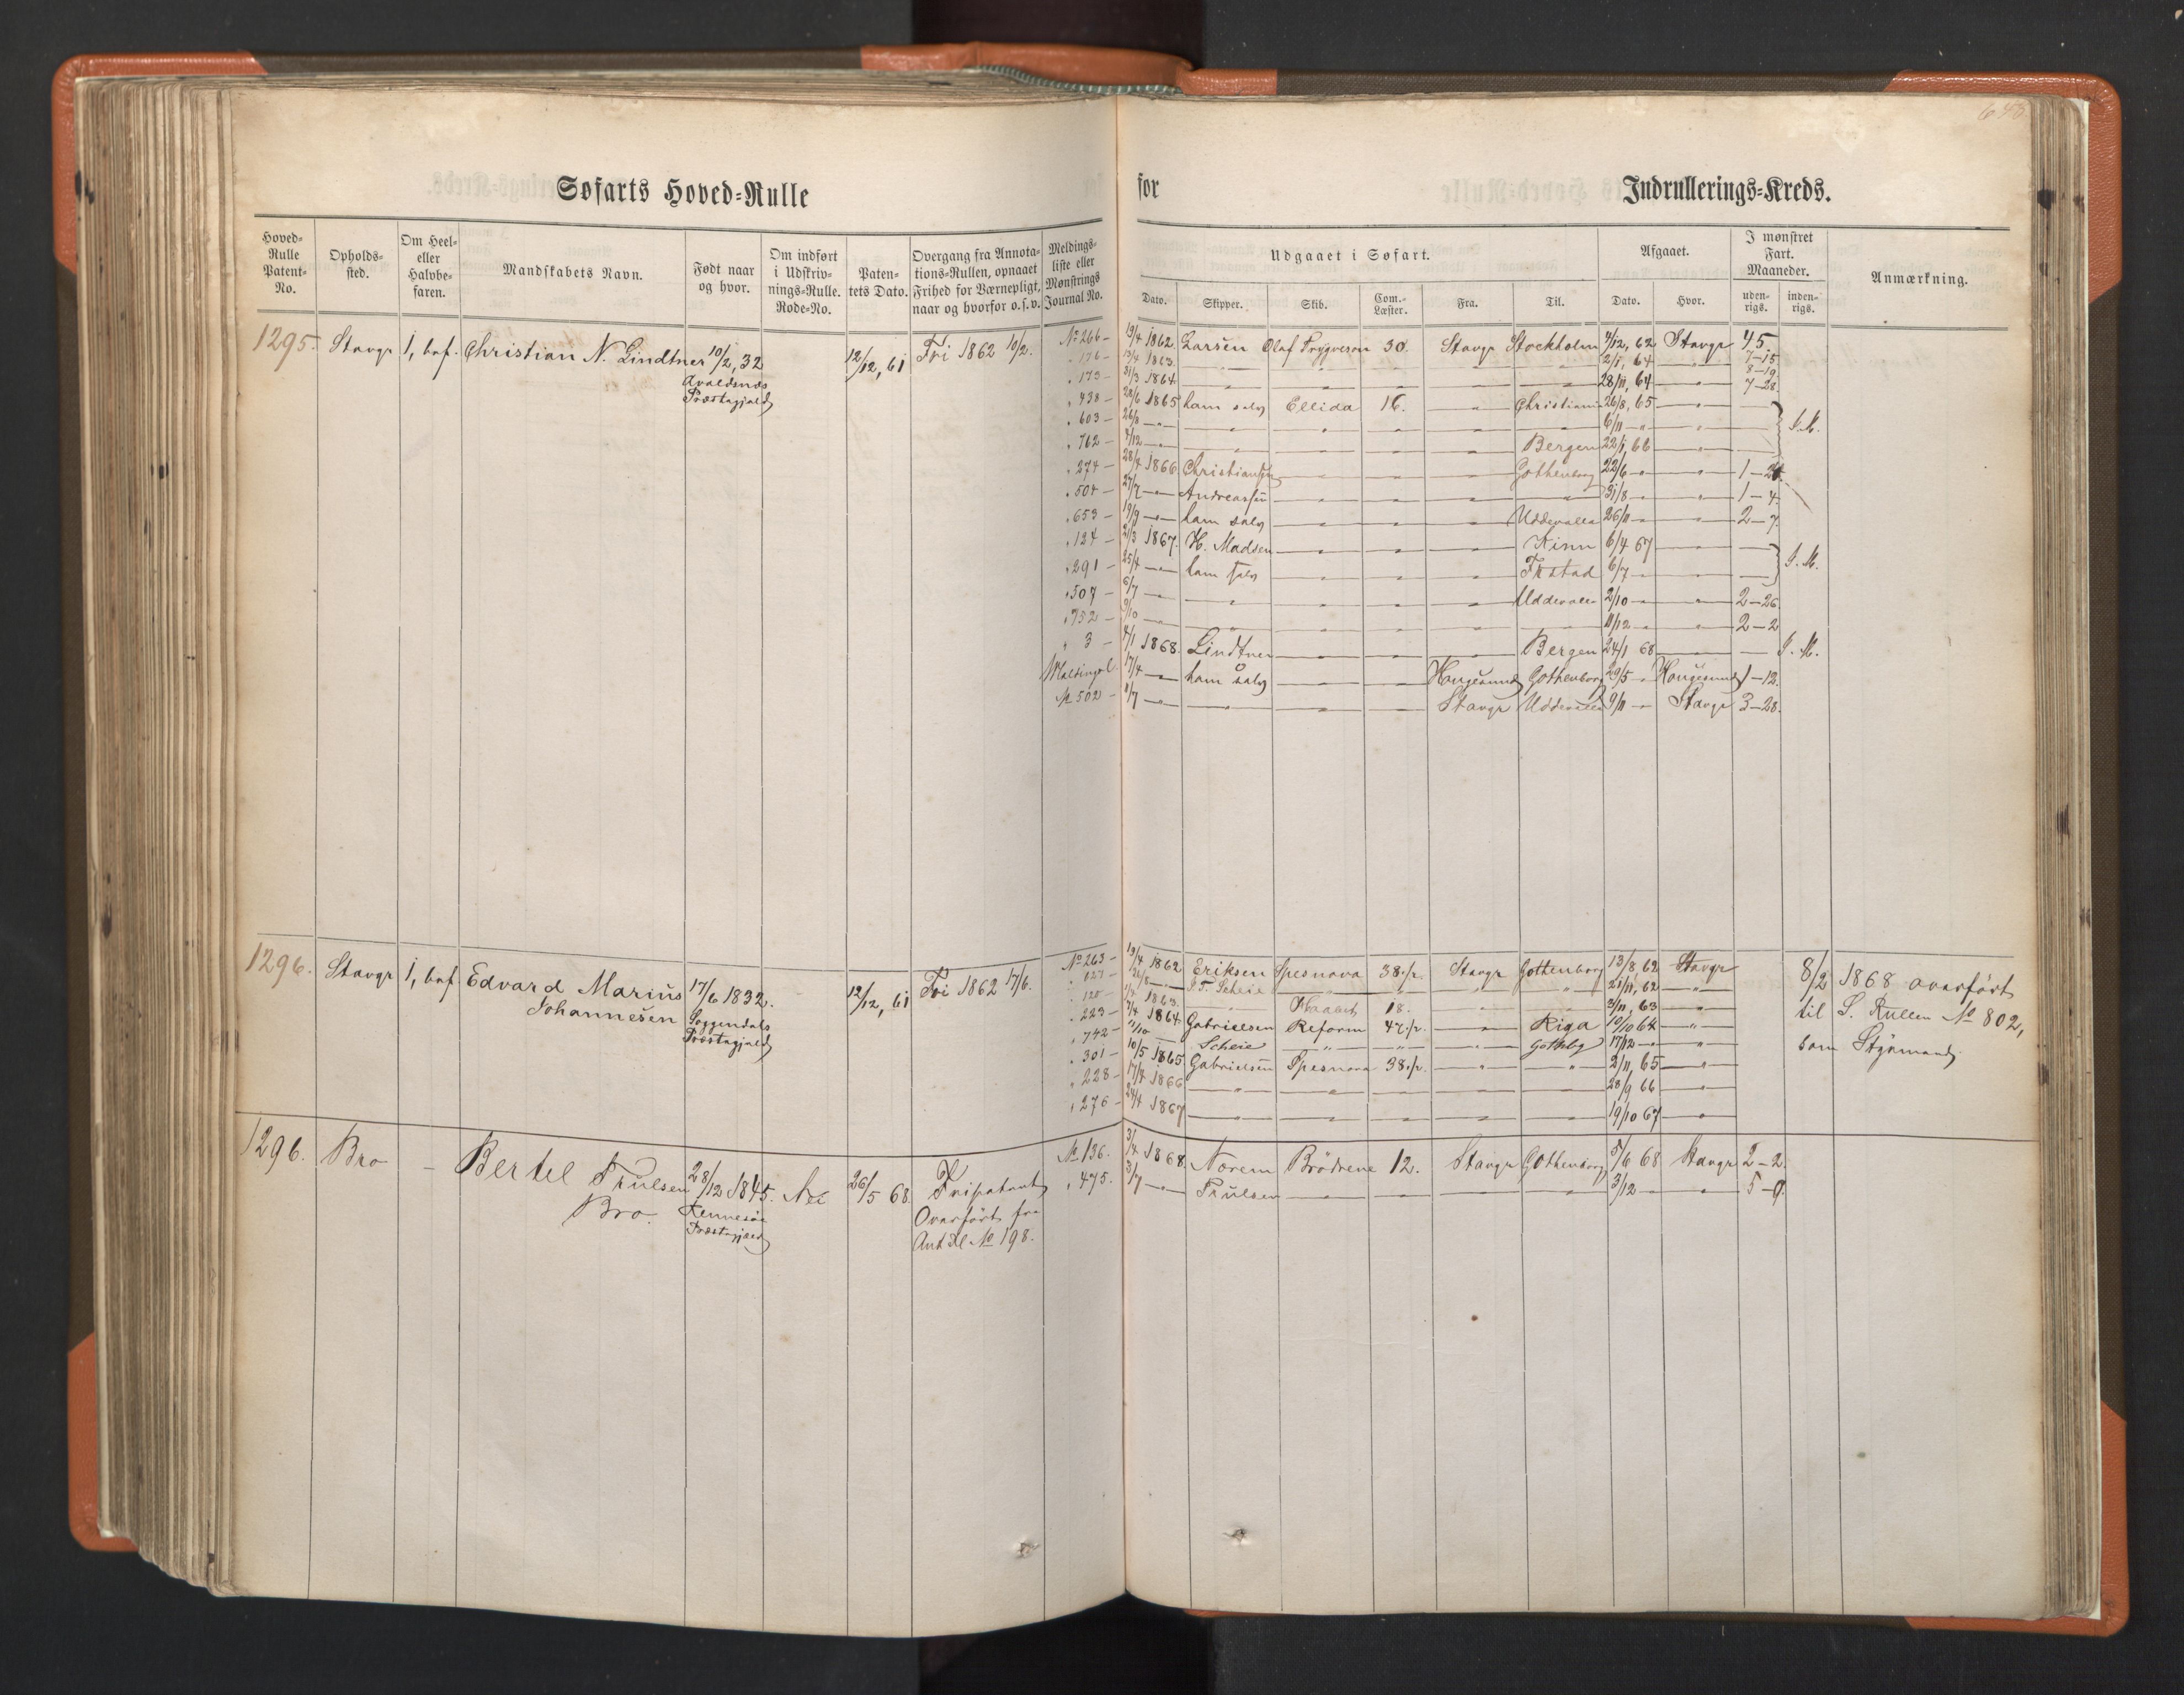 Søfarts Hoved-Rulle for Indrullerings-Kreds.
Hoved-Rulle Patent-No. Opholds-sted. Om Heel- eller Halvbe-faren. Mandskabets Navn. Født naar og hvor. Om indført i Udskriv-nings-Rulle. Rode-No. Paten-tets Dato. Overgang fra Annota-tions-Rullen, opnaaet Frihed for Værnepligt, naar og hvorfor o.s.v. Meldings-liste eller Mønstrings Journal No. Udgaaet i Søfart. Afgaaet. I mønstret Fart. Maaneder. Anmærkning.
Dato. Skipper. Skib. Com.-Læster. Fra. Til. Dato. Hvor. uden-rigs. inden-rigs.
1295. Stavgr 1, bef. Christian N. Lindtner 10/2, 32 12/12, 61 Fri 1862 10/2. No 266 – 19/4 1862. Larsen Olaf Trygveson 30. Stavgr Stockholm 4/12, 62 Stavgr 45.
Avaldsnæs „ 176 – 13/4 1863. – „ – 2/1, 64 – „ – 7–15
Præstegjeld „ 173 – 31/3 1864. – „ – 28/11, 64 – „ – 7–28.
„ 438 – 28/6 1865 ham selv Ellida 16. – „ – Christiania 26/8, 65 – „ –
„ 603 – 26/8 – „ – 6/11 – „ – S.M.
„ 762 – 4/12 – „ – Bergen 22/1, 66 – „ –
„ 274 – 28/4 1866 Christiansen – „ – Gothenborg 22/6 – „ –
„ 504 – 27/7 – „ – Andreassen – „ – 31/8 – „ – 1–4.
„ 653 – 19/9 – „ – ham selv – „ – Uddevalla 26/11 – „ – 2–7.
„ 124 – 2/3 1867. H. Madsen – „ – Kinn 6/4 67 – „ –
„ 291 – 25/4 – „ – ham selv – „ – Frstad 6/7 – „ – S.M.
„ 507 – 6/7 – „ – Uddevalla 2/10 – „ – 2–26.
„ 752 – 9/10 – „ – 11/12 – „ – 2–2
„ 3 – 4/1 1868. Lindtner – „ – Bergen 24/1 68 – S.M.
Meldingsl. 17/4 – „ – ham selv – „ – Haugesund Gothenborg 29/5 – „ Haugesund 1–12.
No 502 – 1/7 – „ – Stavgr Uddevalla 9/11 – „ Stavgr 3–28.
1296. Stavgr 1, bef. Edvard Marius 17/6 1832. 12/12, 61 Fri 1862 17/6. No 263 – 19/4 1862 Eriksen Spesnova 38 1/2. Stavgr Gottenborg 13/8, 62 Stavgr 8/2 1868 overført
Johannesen Soggendals Scheie 21/11, 62 – „ –
Præstegjeld 1863. 18. 3/11, 63 – „ – til S. Rullen No 802,
„ 223 – 7/4 1864 Gabrielsen Reform 47 1/2. – „ – Riga 10/10 64 – „ –
„ 742 – 11/10 Scheie – „ – Gothbg 17/12 – „ – som Styrmand.
„ 301 – 10/5 1865 Gabrielsen Spesnova 38 1/2. – „ – 2/11, 65 – „ –
„ 228 – 17/4 1866 – „ – 28/9 66 – „ –
„ 276 – 24/4 1867 – „ – 19/10 67 – „ –
1296. Bro – Bertel Trulsen 28/12 1845. Nei 26/5 68 Fripatent No 136. 3/4 1868. Norem Brødrene 12. Stavgr Gothenborg 5/6 68 Stavgr 2–2.
Bro. Rennesøe Overført fra „ 475. 3/7 – „ – Trulsen – „ – 3/12 – „ – 5–0.
Præstegjeld Ant Rl No 198.